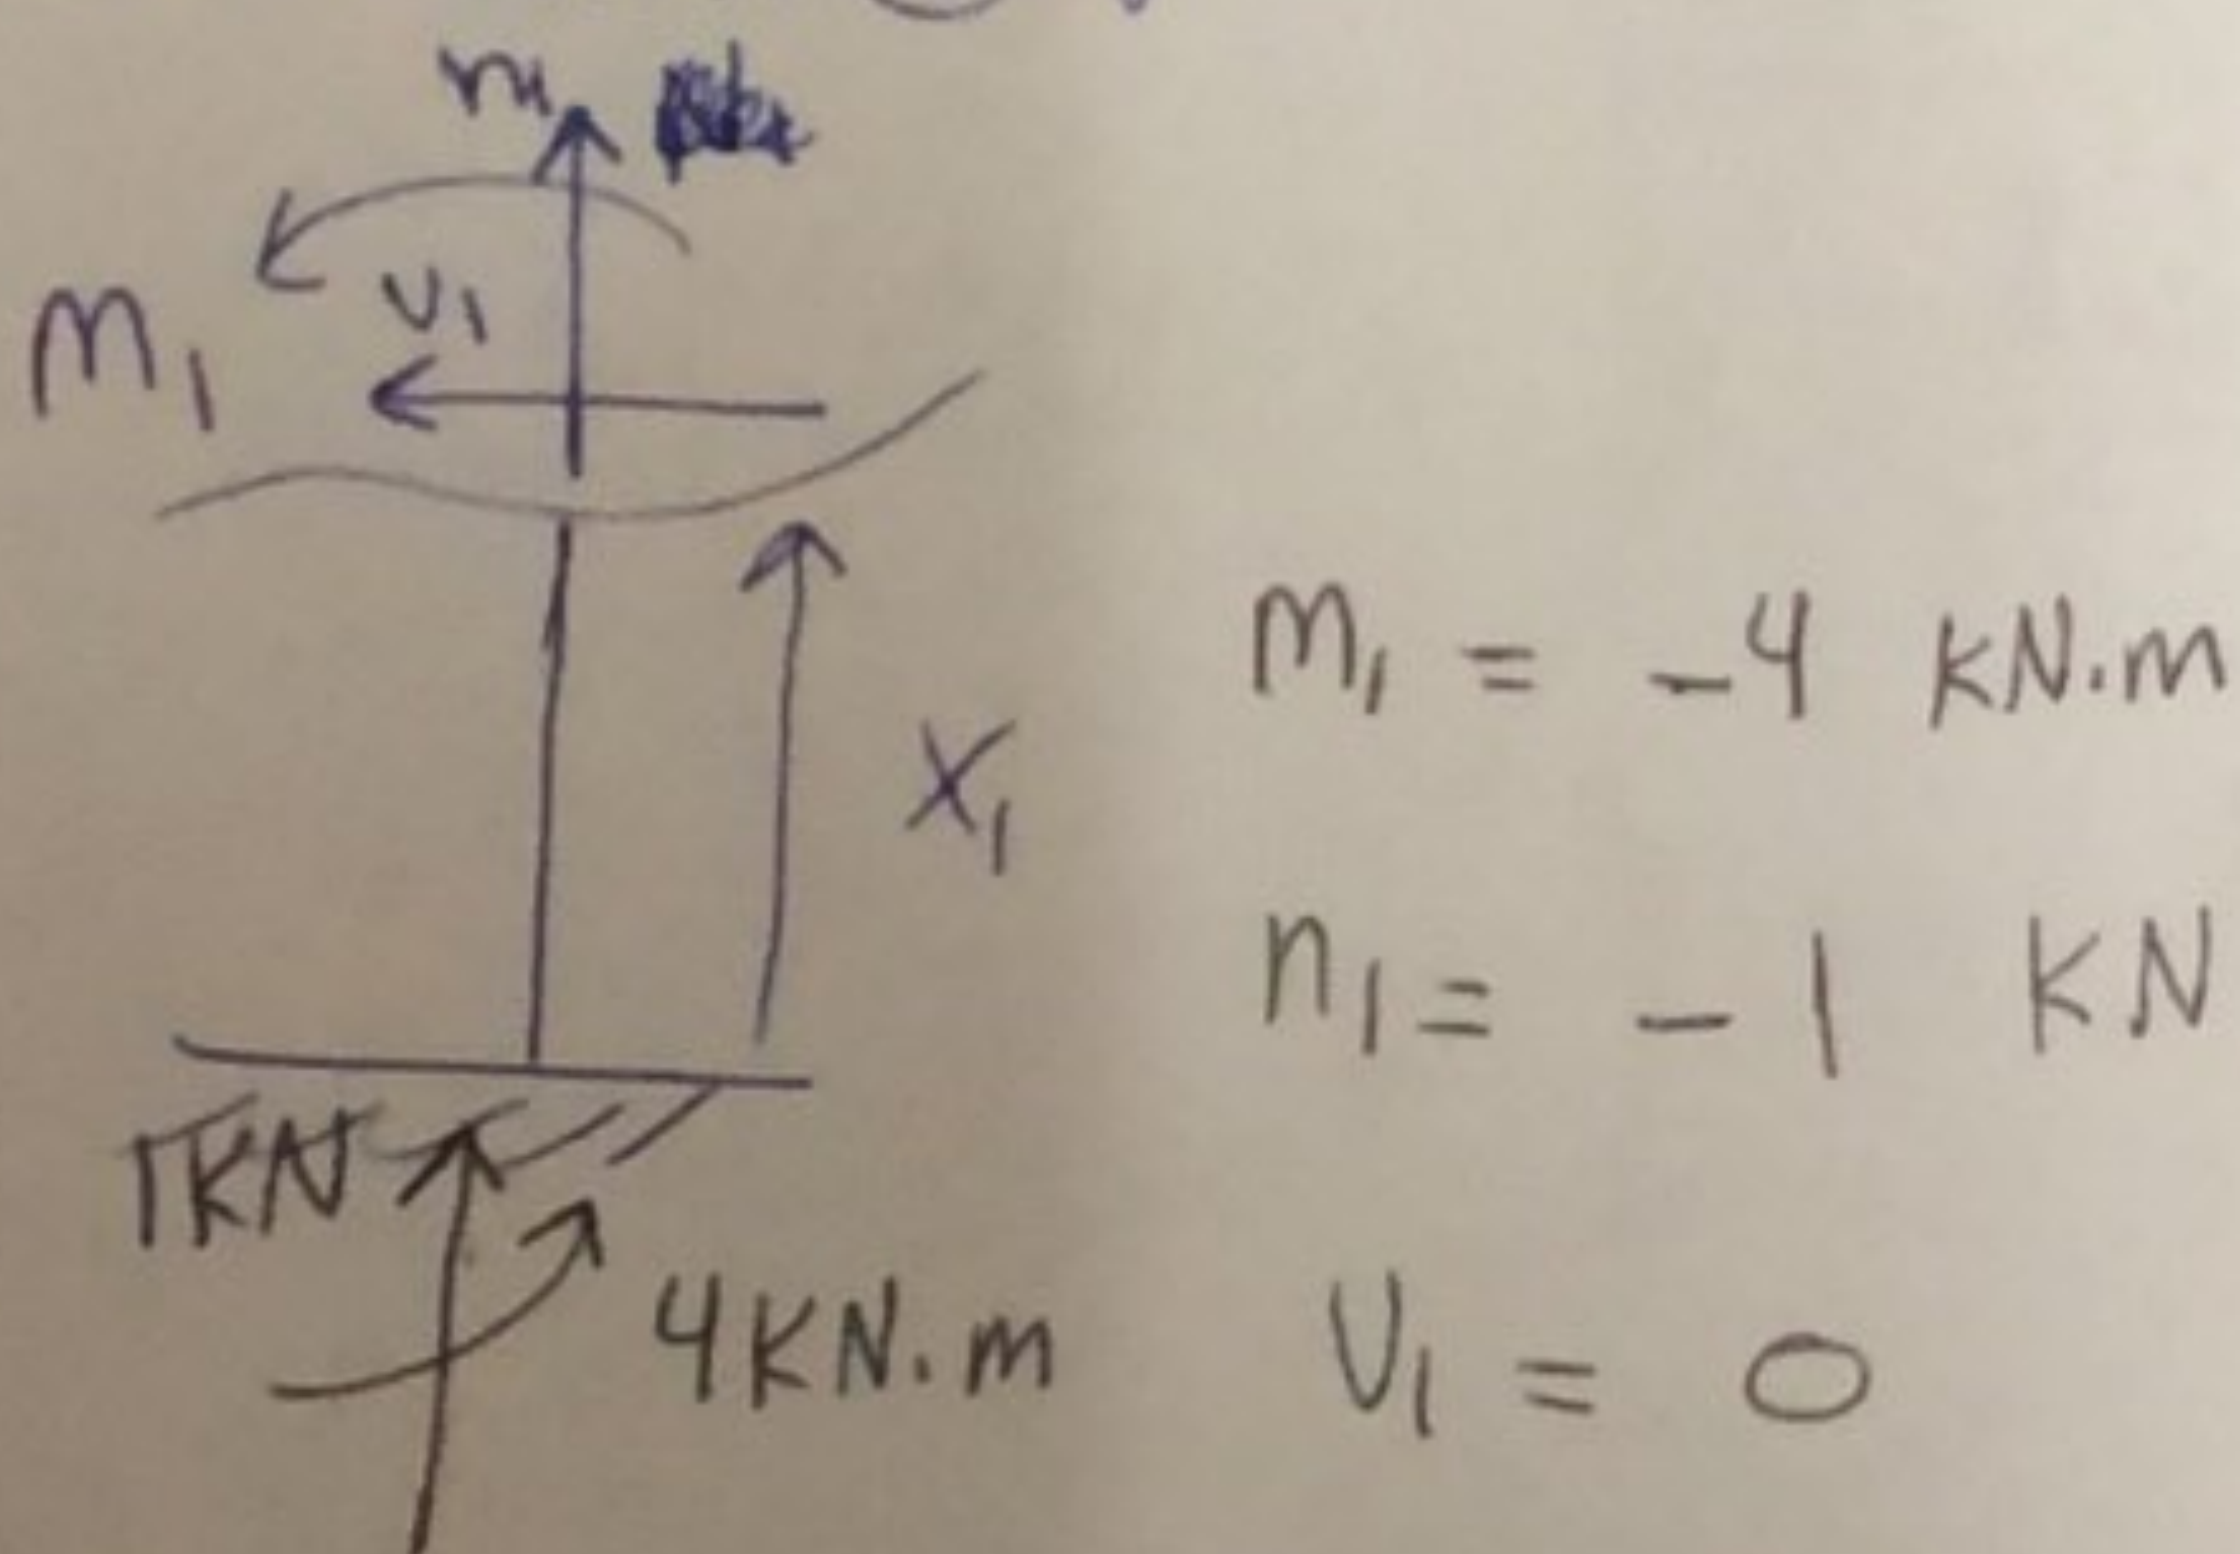 n1
M1
V1
X1
1KN
4KN.m
M1 = -4 KN.m
n1 = -1 KN
V1 = 0